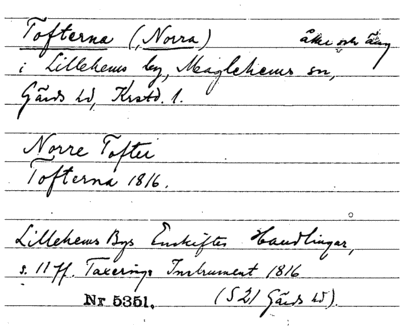 Tofterna (Norra) åker och äng
i Lillehems by, Maglehems sn,
Gärds hd, Krstd. l.
Norre Toftei
Tofterna 1816.
Lillehems Bys Enskiftes Handlingar,
s. 11 ff. Taxerings Instrument 1816
Nr 5351. (S 21 Gärds hd).